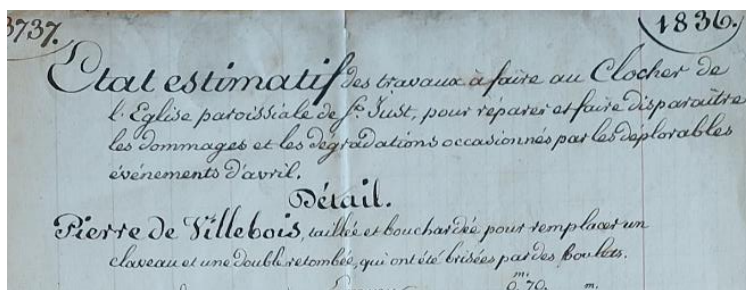 3737.
1836.
Etat estimatif des travaux à faire au Clocher de
l'Eglise paroissiale de St. Just, pour réparer et faire disparaître
les dommages et les dégradations occasionnés par les déplorables
événements d'avril.
Détail.
Pierre de Villebois, taillée et bouchardée pour remplacer un
claveau et une double retombée, qui ont été brisées par des boulets.
m.
0,70. m.